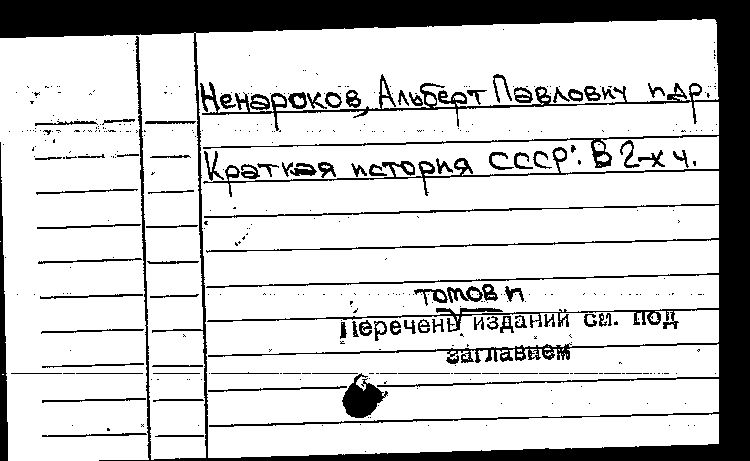 Ненароков, Альберт Павлович и др.
Краткая история СССР: В 2-х ч.
томов и
Перечень изданий см. под
заглавием